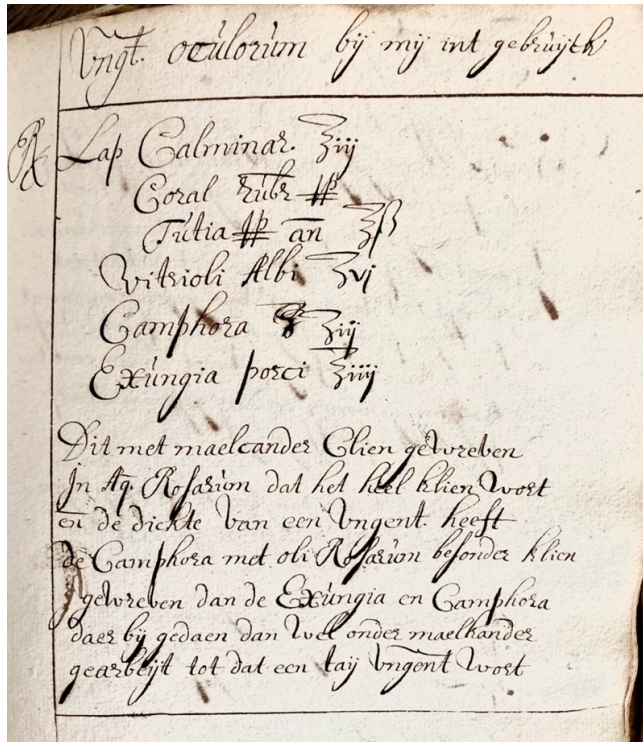 Vngt. oculorum bij mij int gebruijth
℞ Lap Calminar. ʒiij
Coral rubr ꝑꝑ
Tutia ꝑꝑ an ʒß
Vitrioli Albi ʒvj
Camphora ʒiij
Exungia porci ʒiiij
Dit met maelcander Clien gewreven
In Aq. Rosarum dat het heel klien wort
en de dickte van een Vngent. heeft
de Camphora met oli Rosarum besonder klien
gewreven dan de Exungia en Camphora
daer bij gedaen dan wel onder maelkander
gearbeijt tot dat een taij Vngent wort